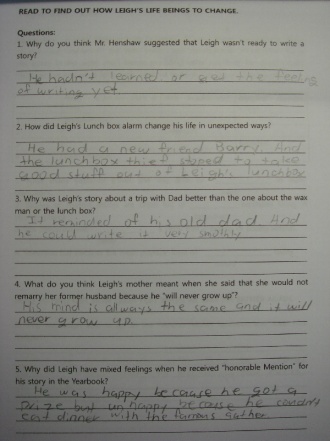 READ TO FIND OUT HOW LEIGH'S LIFE BEINGS TO CHANGE.
Questions:
1. Why do you think Mr. Henshaw suggested that Leigh wasn't ready to write a
story?
He hadn't learned or the feeling
of writing yet
2. How did Leigh's Lunch box alarm change his life in unexpected ways?
He had a new friend Barry. And
the lunchbox thief stoped to take
good stuff out of Leigh's lunchbox
3. Why was Leigh's story about a trip with Dad better than the one about the wax
man or the lunch box?
It reminded of his old dad. And
he could write it very
4. What do you think Leigh's mother meant when she said that she would not
remarry her former husband because he "will never grow up"?
His mind is allways the same and it will
never grow up.
5. Why did Leigh have mixed feelings when he received "honorable Mention" for
his story in the Yearbook?
He was happy because he got a
Prize but unhappy because he
eat dinner with the